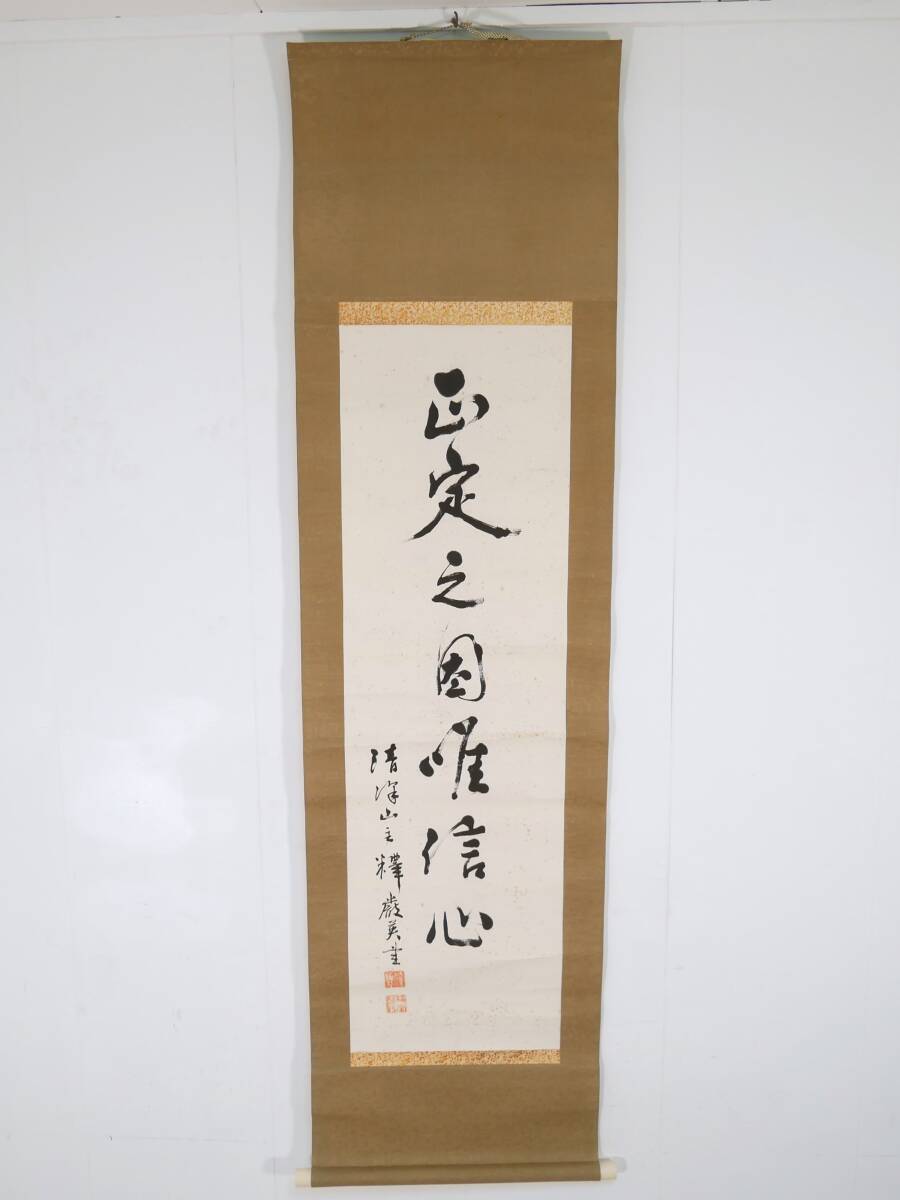 正定之因唯信心
清浄山主釋嚴英書